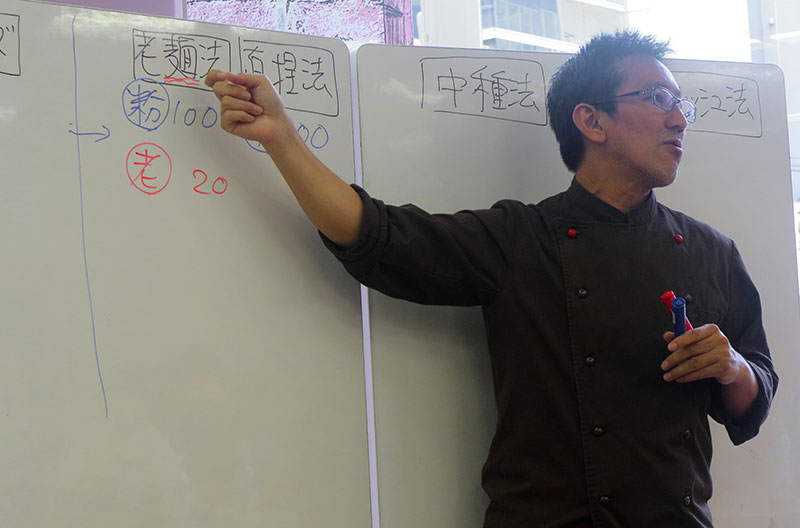 ズ
老麺法
直捏法
中種法
ッシュ法
粉 100
00
老 20